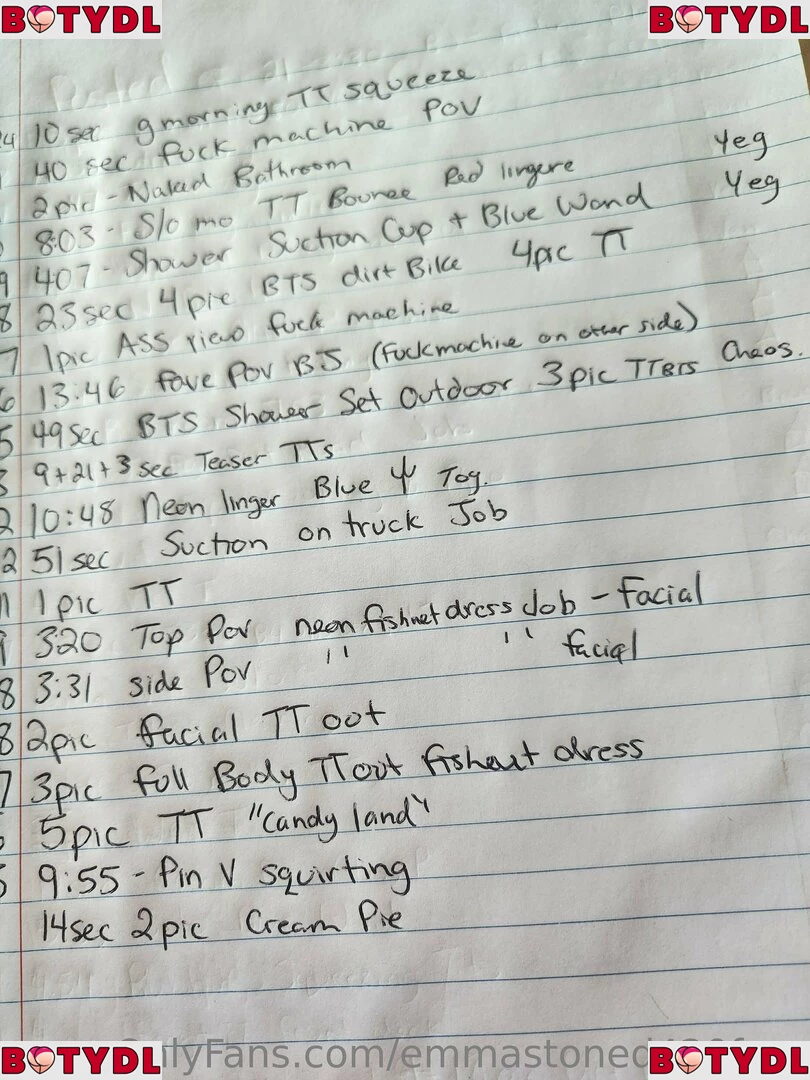 BOTYDL BOTYDL
4 10 sec gmorning TT squeeze
40 sec fuck machine POV
2pic - Naked Bathroom Yeg
8:03 - Slo mo TT Bounce Red lingere Yeg
9 407 - Shower Suction Cup + Blue Wand
8 23sec 4pic BTS dirt Bike 4pic TT
7 1pic ASS view fuck machine
6 13:46 fove POV BJ (Fuckmachine on other side)
5 49sec BTS Shower Set Outdoor 3pic TTBTS Chaos.
3 9+21+3 sec Teaser TTs
2 10:48 Neon linger Blue Toy.
2 51 sec Suction on truck Job
1 1pic TT
9 320 Top Pov neon fishnet dress Job - facial
8 3:31 side POV " " facial
8 2pic facial TT oot
7 3pic full Body TT out fishnet dress
5pic TT "Candy land"
5 9:55 - Pin V squirting
14sec 2pic Cream Pie
OnlyFans.com/emmastoned
BOTYDL BOTYDL